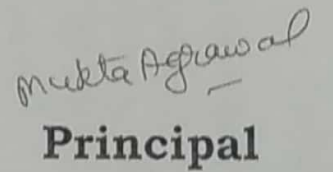 Mukta Agrawal
Principal